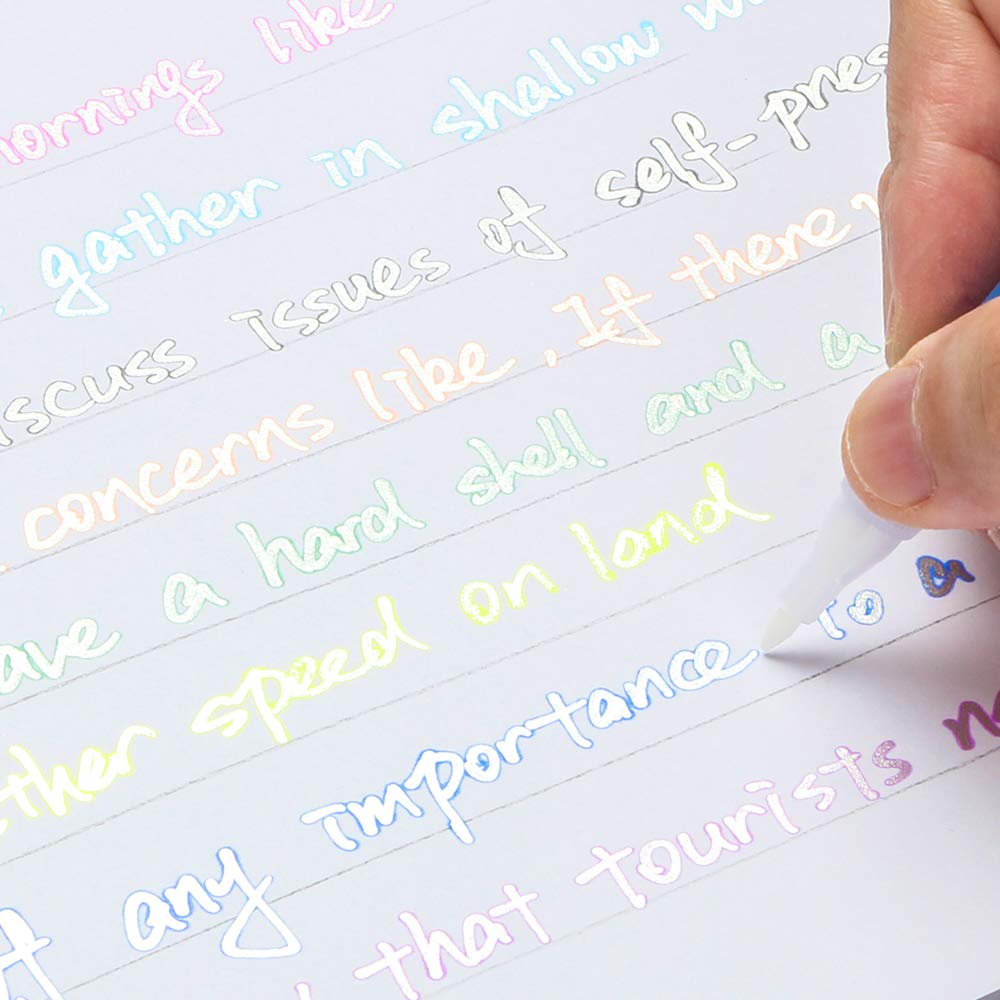 mornings like
gather in shallow
discuss issues of self-pres
concerns like, If there
have a hard shell and a
ther speed on land
any importance to a
that tourists